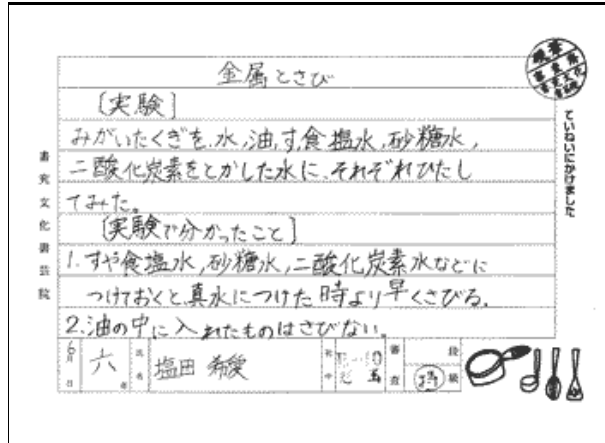 金属とさび
[実験]
みがいたくぎを、水,油,す,食塩水,砂糖水,
二酸化炭素をとかした水に、それぞれひたし
てみた。
[実験で分かったこと]
1.すや食塩水,砂糖水,二酸化炭素水などに
つけておくと、真水につけた時より早くさびる。
2.油の中に入れたものはさびない。
ていねいにかけました
書究文化書芸院
6月 日
六 年
氏名
塩田 希愛
審査
段
級